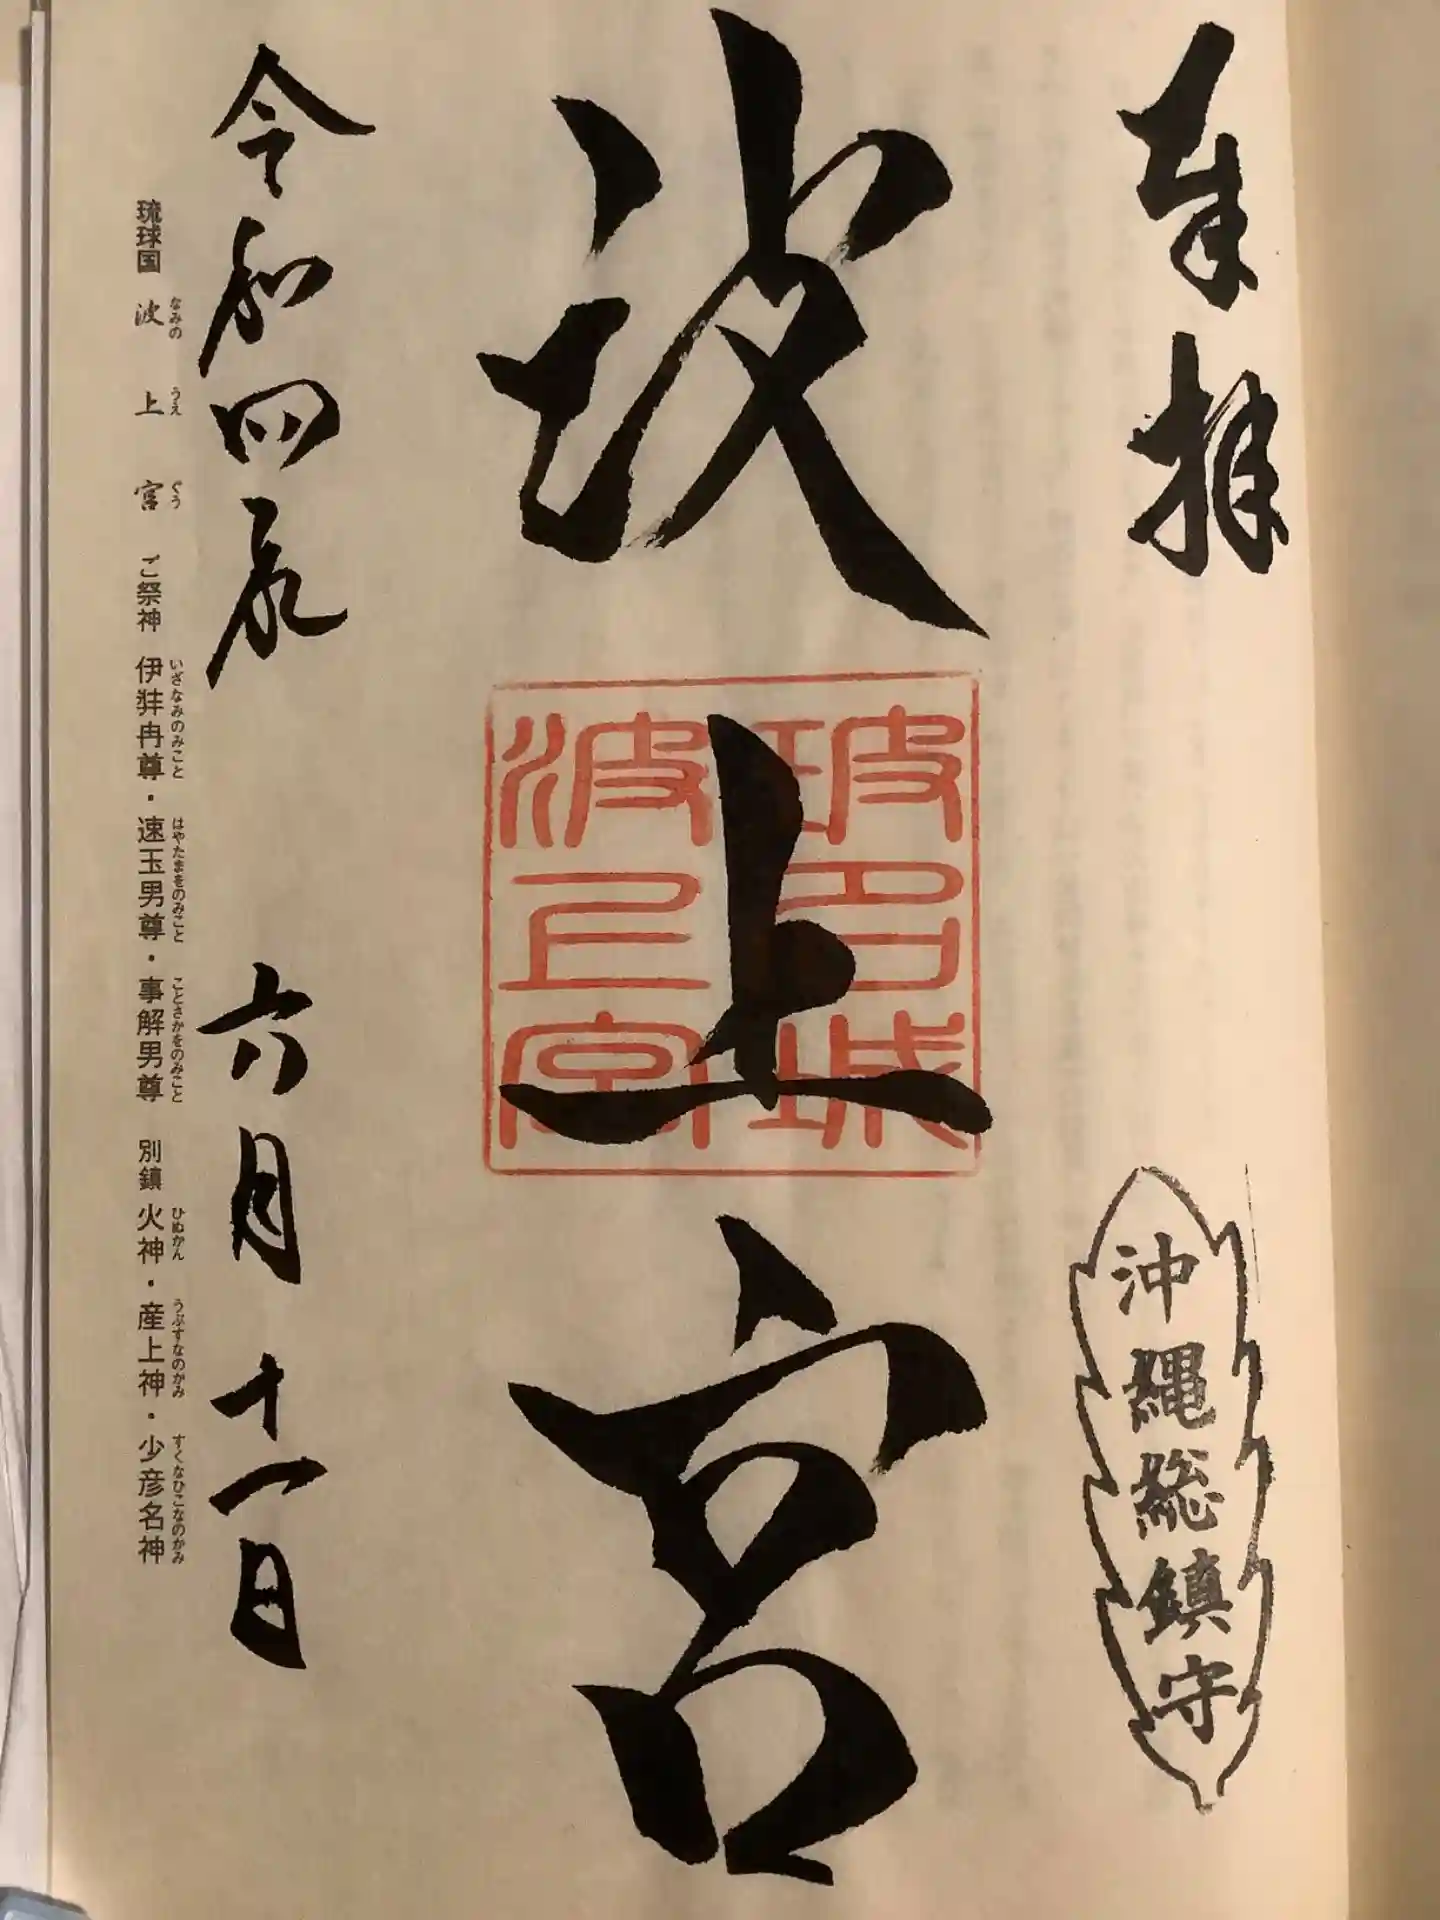 奉拝
沖縄総鎮守
波上宮
玻名城
波上宮
令和四年 六月十一日
琉球国 波上宮 ご祭神 伊弉冉尊・速玉男尊・事解男尊 別鎮 火神・産土神・少彦名神
なみの うえ ぐう いざなみのみこと はやたまをのみこと ことさかをのみこと ひぬかん うぶすなのかみ すくなひこなのかみ